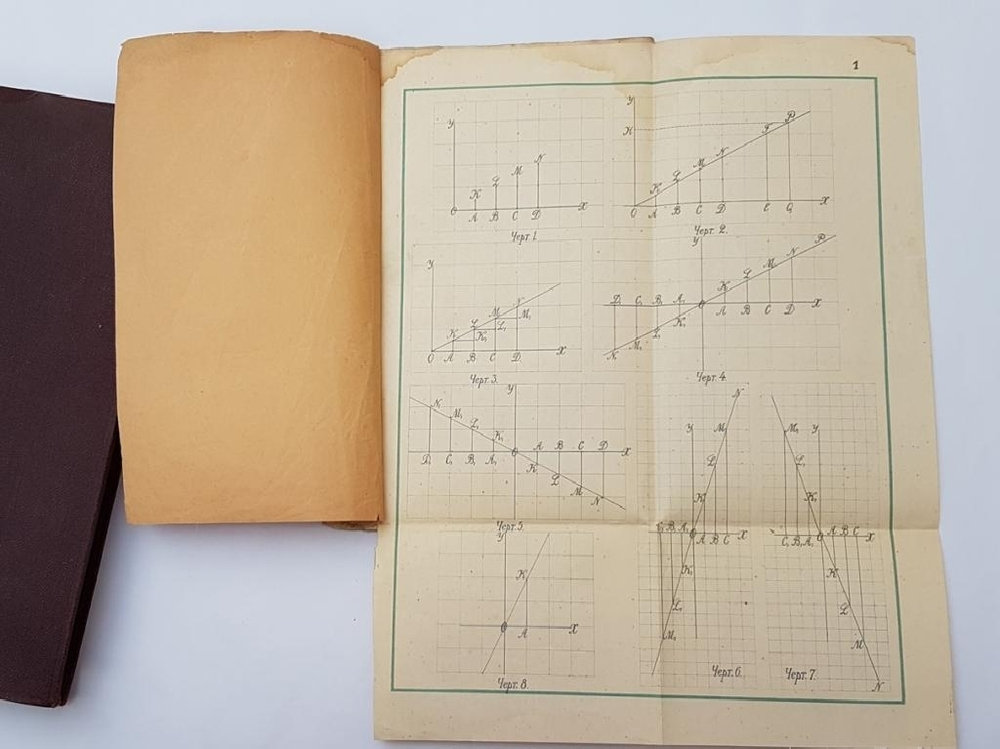 1
У
K L M N
O A B C D X
Черт. 1.
У
H
K L M N F P
O A B C D E G X
Черт. 2.
У
K L M N
K₁ L₁ M₁
O A B C D X
Черт. 3.
У
K L M N P
D₁ C₁ B₁ A₁ O A B C D X
N₁ M₁ L₁ K₁
Черт. 4.
У
N₁ M₁ L₁ K₁
D₁ C₁ B₁ A₁ O A B C D X
K L M N
Черт. 5.
N
У M
L
K
B₁ A₁ O A B C X
K₁
L₁
M₁
Черт. 6.
M₁ У
L₁
K₁
C₁ B₁ A₁ O A B C X
K
L
M
N
Черт. 7.
У
K
O A X
Черт. 8.